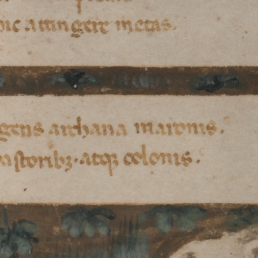 hic attingere metas.
gens archana maronis.
pastoribꝫ · atqꝫ colonis.